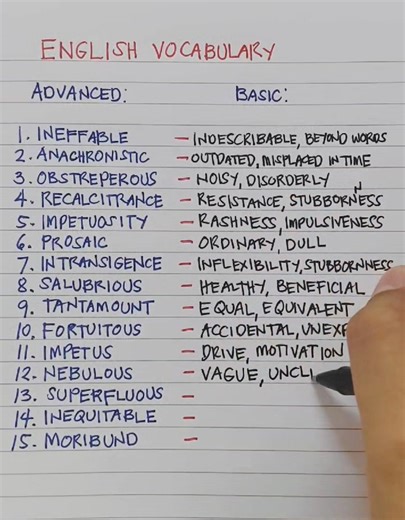 ENGLISH VOCABULARY
ADVANCED: BASIC:
1. INEFFABLE – INDESCRIBABLE, BEYOND WORDS
2. ANACHRONISTIC – OUTDATED, MISPLACED IN TIME
3. OBSTREPEROUS – NOISY, DISORDERLY
4. RECALCITRANCE – RESISTANCE, STUBBORNNESS
5. IMPETUOSITY – RASHNESS, IMPULSIVENESS
6. PROSAIC – ORDINARY, DULL
7. INTRANSIGENCE – INFLEXIBILITY, STUBBORNNESS
8. SALUBRIOUS – HEALTHY, BENEFICIAL
9. TANTAMOUNT – EQUAL, EQUIVALENT
10. FORTUITOUS – ACCIDENTAL,
11. IMPETUS – DRIVE, MOTIVATION
12. NEBULOUS – VAGUE, UNCL
13. SUPERFLUOUS –
14. INEQUITABLE –
15. MORIBUND –